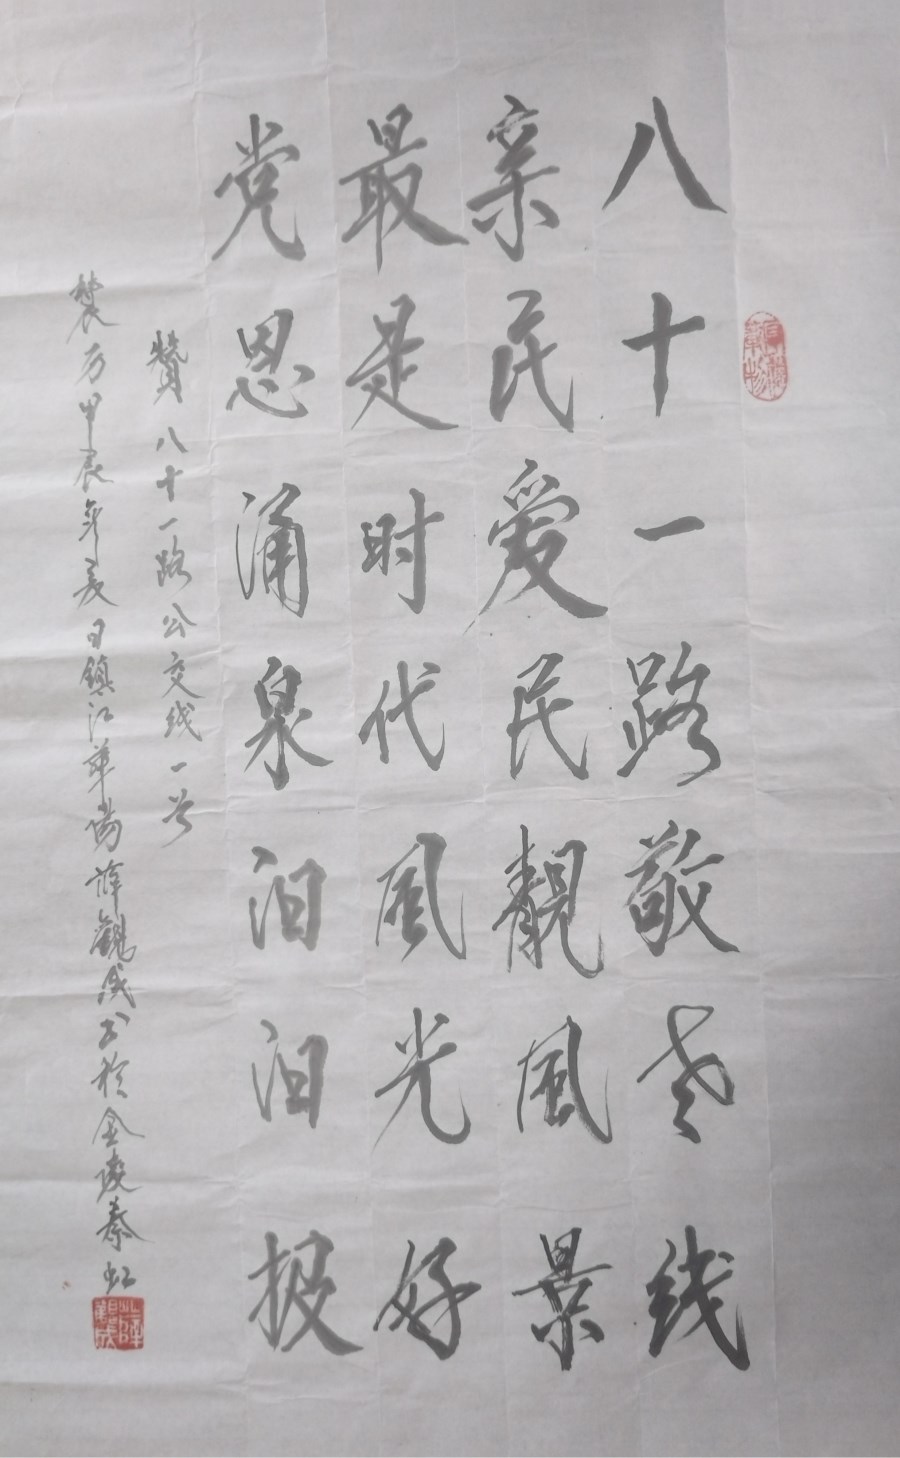 八十一路敬老线
亲民爱民靓风景
最是时代风光好
党恩涌泉汩汩报
赞八十一路公交线一首
农历甲辰年夏日镇江华阳薛观成书于金陵秦虹
薛观成